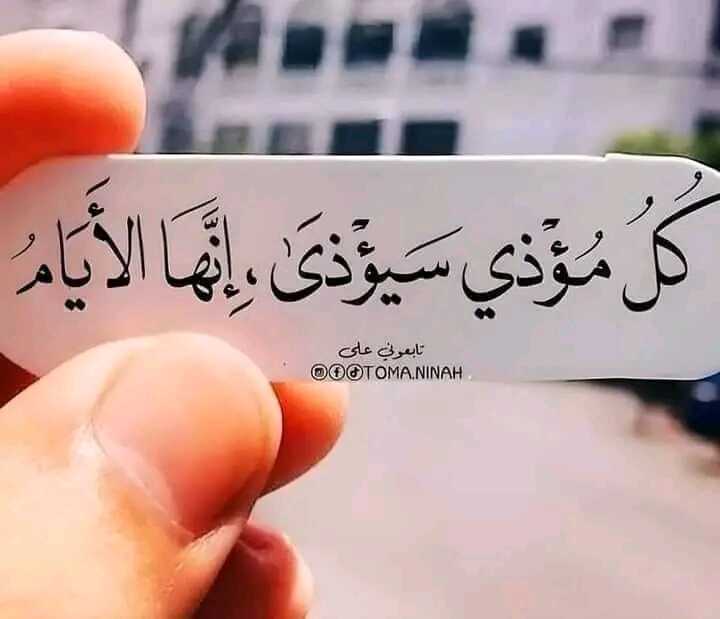 كُلُ مُؤْذي سَيؤْذىٰ ، إِنَّهَا الأَيَامُ
تابعوني على
TOMA.NINAH